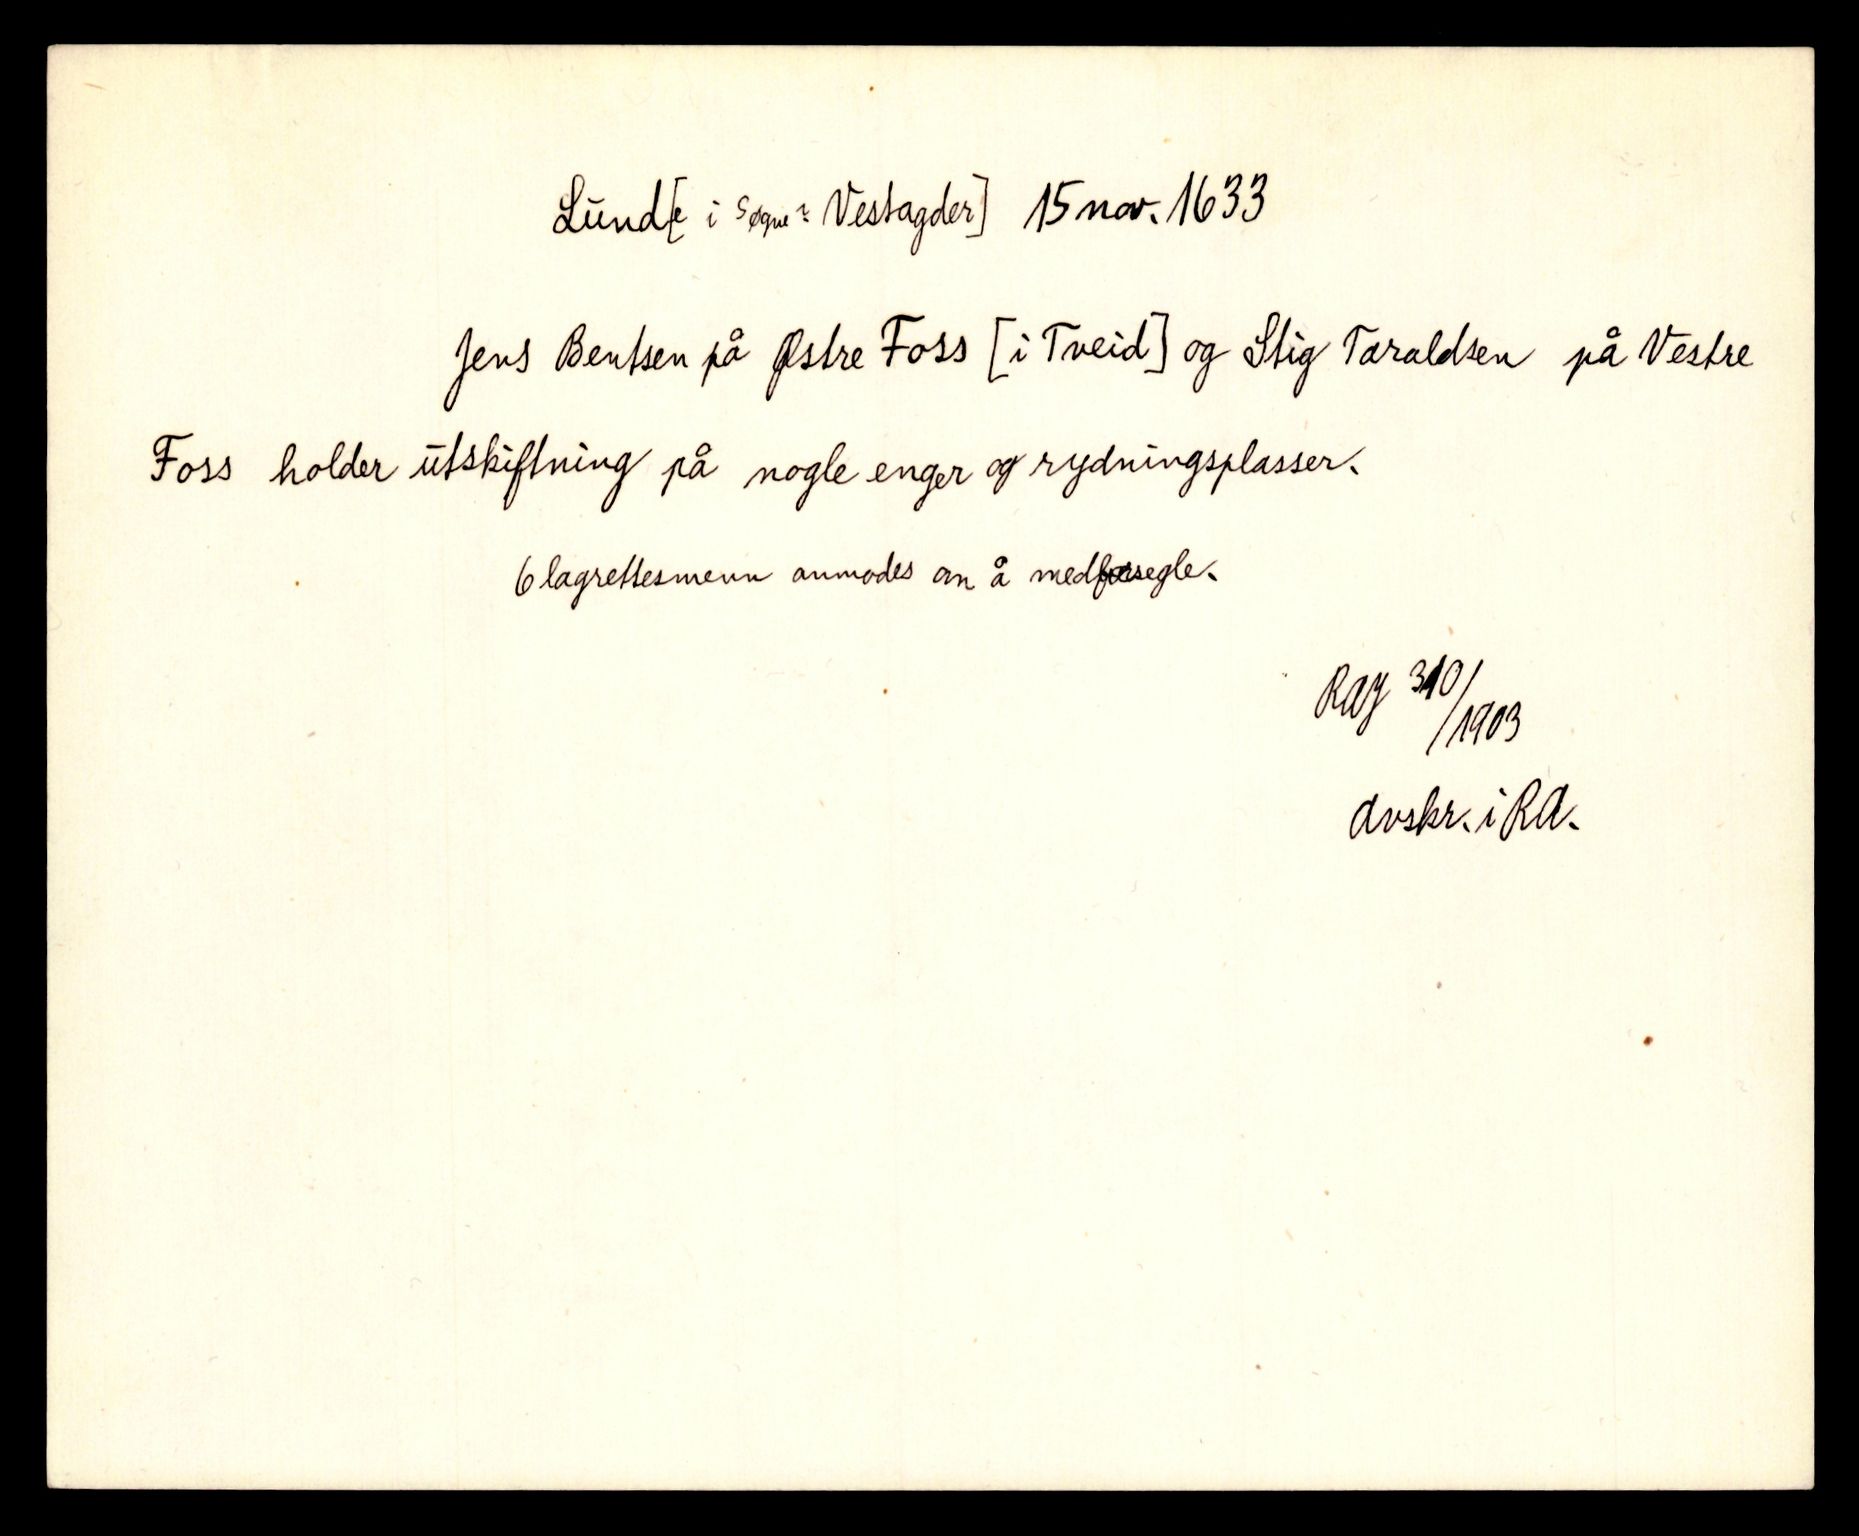 Lund[e i Søgne? Vestagder] 15 nov. 1633
Jens Bentsen på Østre Foss [i Tveid] og Stig Taraldsen på Vestre
Foss holder utskiftning på nogle enger og rydningsplasser.
6 lagrettesmenn anmodes om å medforsegle.
RAJ 310/1903
Avskr. i RA.